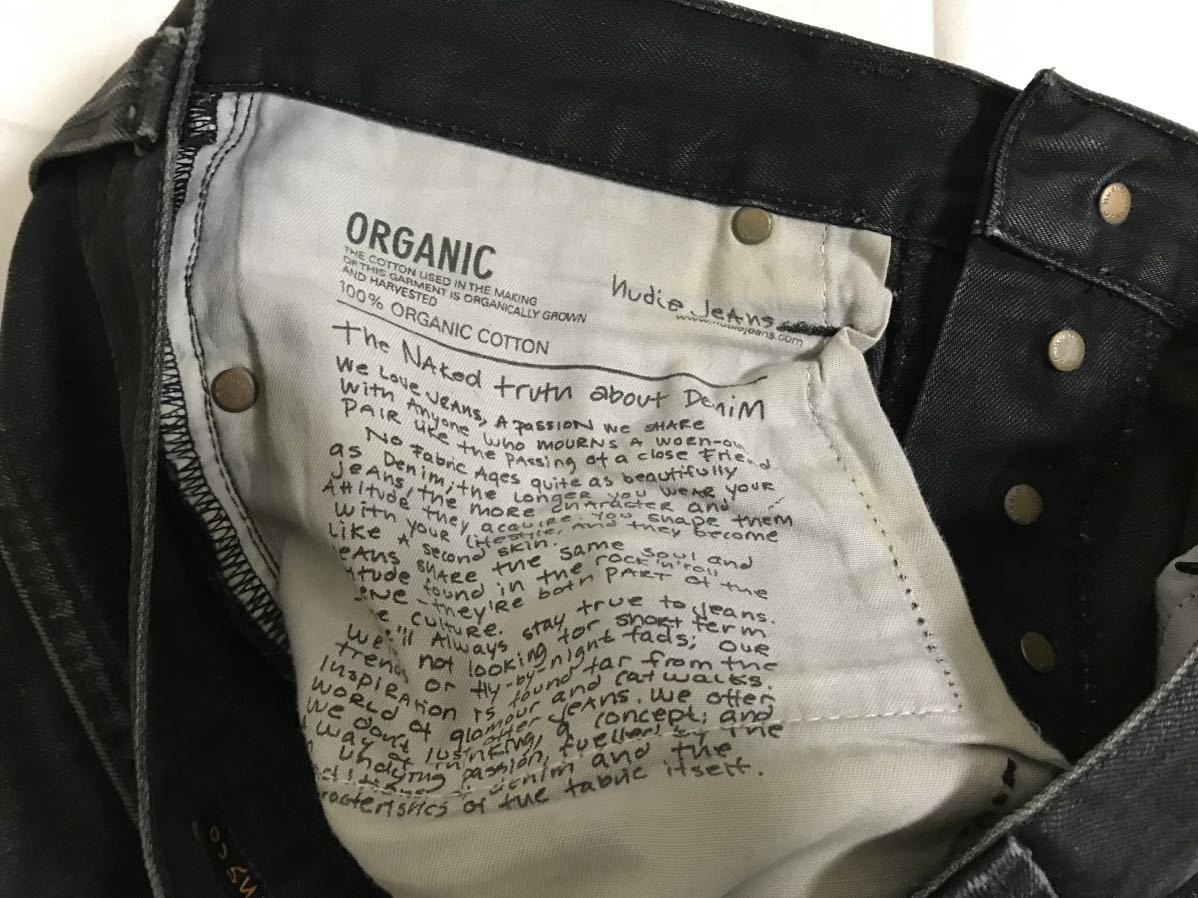 ORGANIC
THE COTTON USED IN THE MAKING
OF THIS GARMENT IS ORGANICALLY GROWN
AND HARVESTED
100% ORGANIC COTTON
Nudie Jeans
www.nudiejeans.com
The NAked truth about DeniM
We Love JeAns, A pASSION we SHARE
With Anyone who mourns a worn-ou
PAIR like the passing of a close Friend
No Fabric Ages quite as beautifully
as Denim; the longer you WeAr YOUR
jeAns, the more character and
Attitude they acquire. You shape them
with your lifestyle, and they become
like A second skin.
eAns share the same soul and
itude found in the rock'n'roll
ene - they're both PART of the
e culture.
We'll Always stay true to jeans.
not looking for short term
trends or fly-by-night fads; our
InspiRAtion is found far from the
world of glamour and catwalks.
We don't just offer jeAns. We offer
way of thinking, a concept; and
undying passion, fuelled by the
denim and the
racteristics of the fabric itself.